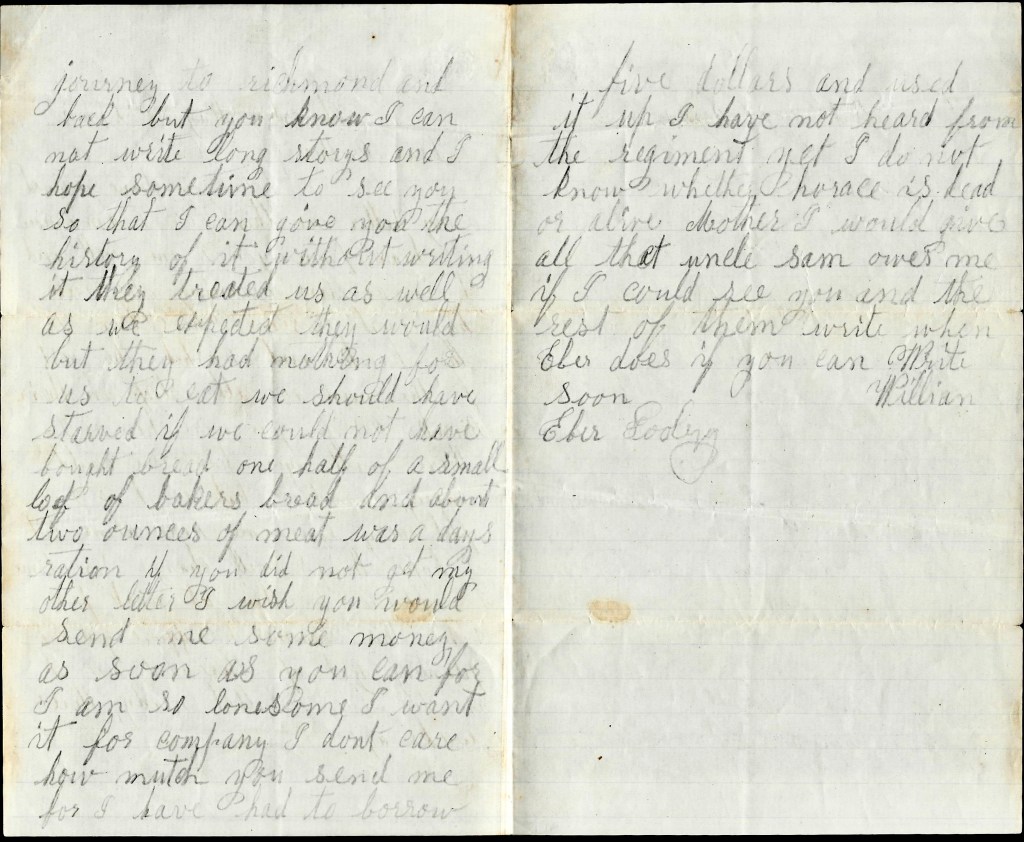 journey to richmond and
back but you know I can
not write long storys and I
hope sometime to see you
so that I can give you the
history of it without writing
it they treated us as well
as we expected they would
but they had mothing for
us to eat we should have
starved if we could not have
bought bread one half of a small
lof of bakers bread and about
two ounces of meat was a days
ration if you did not get my
other letter I wish you would
send me some money
as soon as you can for
I am so lonesome I want
it for company I dont care
how mutch you send me
for I have had to borrow
five dollars and used
it up I have not heard from
the regiment yet I do not
know whether horace is dead
or alive Mother I would give
all that uncle sam owes me
if I could see you and the
rest of them write when
Eber does if you can Write
soon Willian
Eber